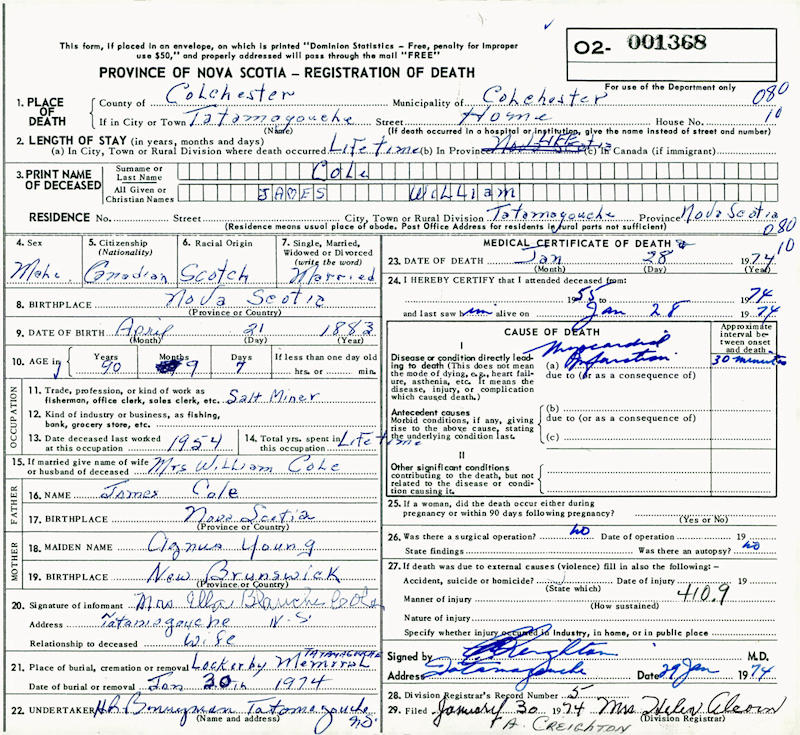 This form, if placed in an envelope, on which is printed "Dominion Statistics – Free, penalty for improper
use $50," and properly addressed will pass through the mail "FREE"
O2- 001368
PROVINCE OF NOVA SCOTIA – REGISTRATION OF DEATH
For use of the Department only
1. PLACE OF DEATH
County of Colchester Municipality of Colchester 080
If in City or Town Tatamagouche Street Home House No. 10
(Name) (If death occurred in a hospital or institution, give the name instead of street and number)
2. LENGTH OF STAY (in years, months and days)
(a) In City, Town or Rural Division where death occurred Lifetime (b) In Province LIFE (c) In Canada (if immigrant)
3. PRINT NAME OF DECEASED
Surname or Last Name Cole
All Given or Christian Names JAMES WILLIAM
RESIDENCE No. Street City, Town or Rural Division Tatamagouche Province Nova Scotia
(Residence means usual place of abode. Post Office Address for residents in rural parts not sufficient) 080
10
4. Sex
Male
5. Citizenship
(Nationality)
Canadian
6. Racial Origin
Scotch
7. Single, Married,
Widowed or Divorced
(write the word)
Married
8. BIRTHPLACE Nova Scotia
(Province or Country)
9. DATE OF BIRTH April 21 1883
(Month) (Day) (Year)
10. AGE in Years Months Days If less than one day old
90 9 7 hrs. or min.
OCCUPATION
11. Trade, profession, or kind of work as
fisherman, office clerk, sales clerk, etc. Salt Miner
12. Kind of industry or business, as fishing,
bank, grocery store, etc.
13. Date deceased last worked
at this occupation 1954
14. Total yrs. spent in
this occupation Lifetime
15. If married give name of wife
or husband of deceased Mrs William Cole
FATHER
16. NAME James Cole
17. BIRTHPLACE Nova Scotia
(Province or Country)
MOTHER
18. MAIDEN NAME Agnus Young
19. BIRTHPLACE New Brunswick
(Province or Country)
20. Signature of informant Mrs Ella Blanche Cole
Address Tatamagouche N.S
Relationship to deceased Wife
21. Place of burial, cremation or removal Lockerby Memorial TATAMAGOUCHE
Date of burial or removal Jan 30th 1974
22. UNDERTAKER Tatamagouche N.S.
(Name and address)
MEDICAL CERTIFICATE OF DEATH
23. DATE OF DEATH Jan 28 1974
(Month) (Day) (Year)
24. I HEREBY CERTIFY that I attended deceased from:
1955 to 1974
and last saw him alive on Jan 28 1974
CAUSE OF DEATH
Approximate
interval be-
tween onset
and death
I
Disease or condition directly lead-
ing to death (This does not mean
the mode of dying, e.g., heart fail-
ure, asthenia, etc. It means the
disease, injury, or complication
which caused death.)
(a) Myocardial Infarction 30 minutes
due to (or as a consequence of)
Antecedent causes
Morbid conditions, if any, giving
rise to the above cause, stating
the underlying condition last.
(b)
due to (or as a consequence of)
(c)
II
Other significant conditions
contributing to the death, but not
related to the disease or condi-
tion causing it.
25. If a woman, did the death occur either during
pregnancy or within 90 days following pregnancy?
(Yes or No)
26. Was there a surgical operation? no Date of operation 19
State findings Was there an autopsy? no
27. If death was due to external causes (violence) fill in also the following:–
Accident, suicide or homicide? Date of injury 19
(State which)
Manner of injury 410.9
(How sustained)
Nature of injury
Specify whether injury occurred in industry, in home, or in public place
Signed by Creighton M.D.
Address Tatamagouche Date 29 Jan 1974
28. Division Registrar's Record Number 5
29. Filed January 30 1974 Mrs Helen
(Division Registrar)
A. CREIGHTON